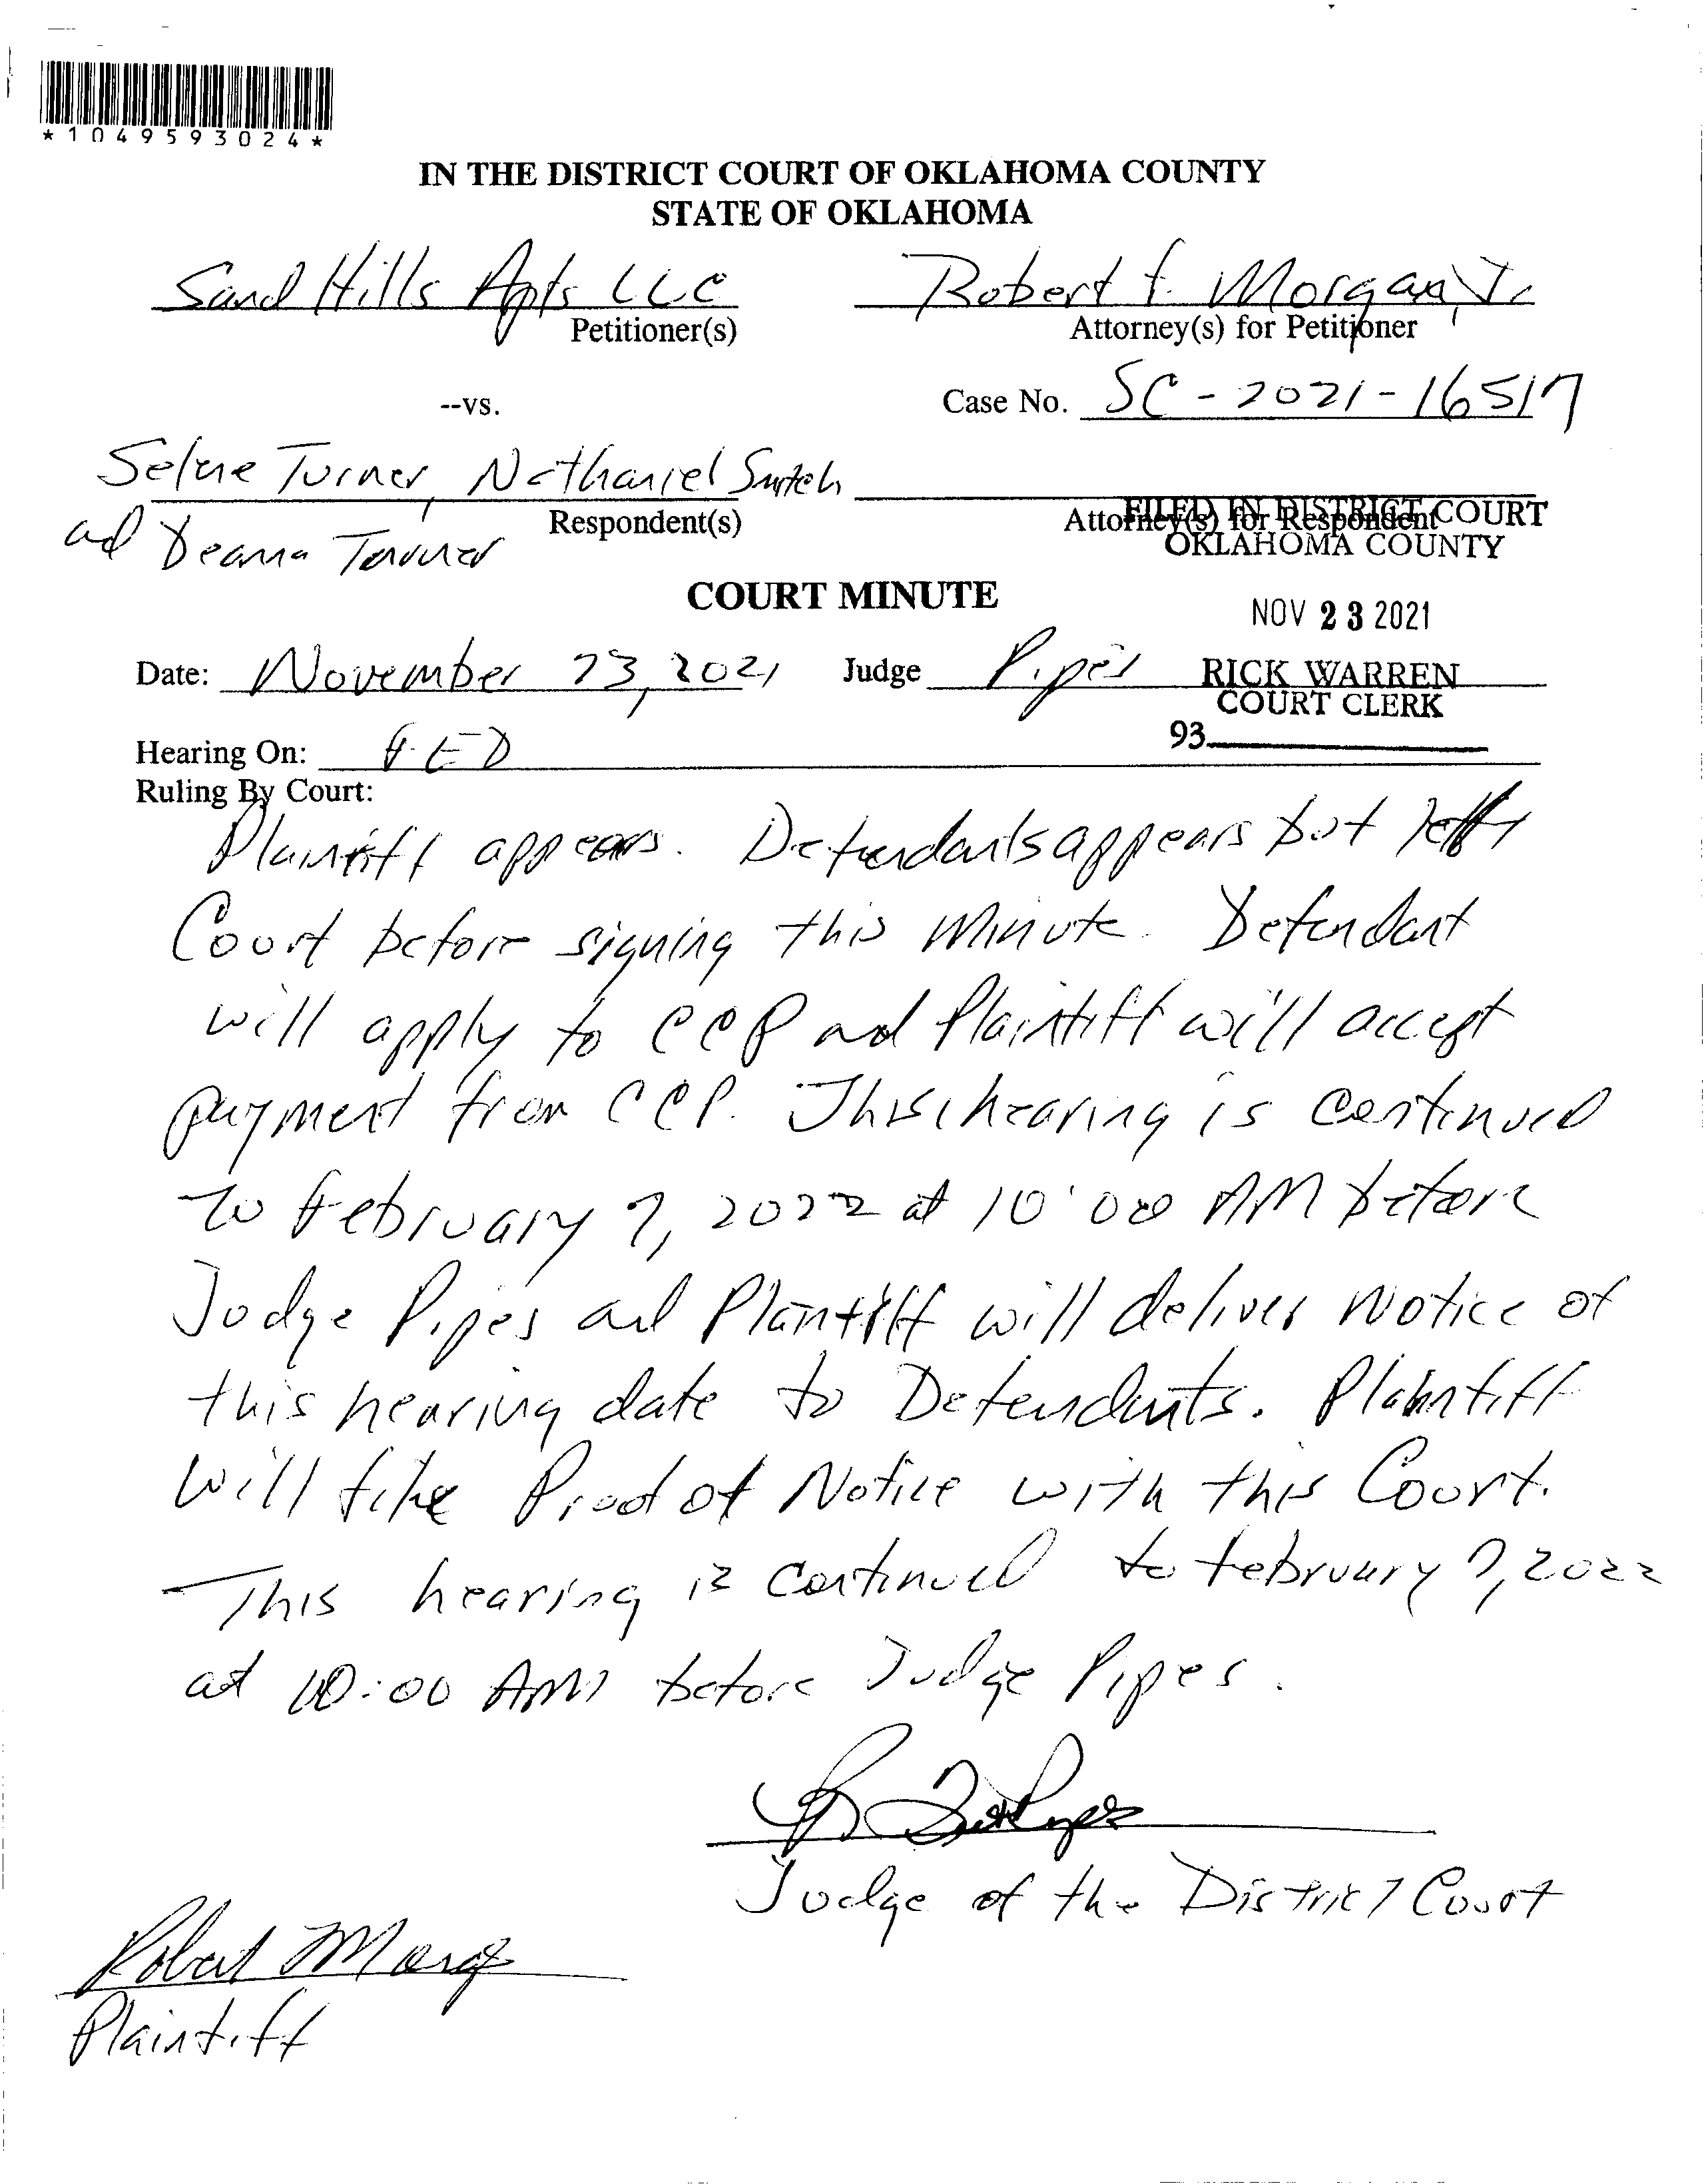 *1049593024*
IN THE DISTRICT COURT OF OKLAHOMA COUNTY
STATE OF OKLAHOMA
Sand Hills Apts LLC
Robert F. Morgan, Jr
Petitioner(s)
Attorney(s) for Petitioner
--vs.
Case No. SC-2021-16517
Selene Turner, Nathaniel Smith
Respondent(s)
Attorney(s) for Respondent
FILED IN DISTRICT COURT
OKLAHOMA COUNTY
ad Deanna Turner
COURT MINUTE
NOV 23 2021
Date: November 23, 2021 Judge Pipes
RICK WARREN
COURT CLERK
93
Hearing On: FED
Ruling By Court:
Plaintiff appears. Defendants appears but left
Court before signing this Minute. Defendant
will apply to CCP and Plaintiff will accept
payment from CCP. This hearing is continued
to February 7, 2022 at 10:00 AM before
Judge Pipes and Plaintiff will deliver Notice of
this hearing date to Defendants. Plaintiff
will file Proof of Notice with this Court.
This hearing is continued to February 7, 2022
at 10:00 AM before Judge Pipes.
Judge of the District Court
Robert Morgan
Plaintiff